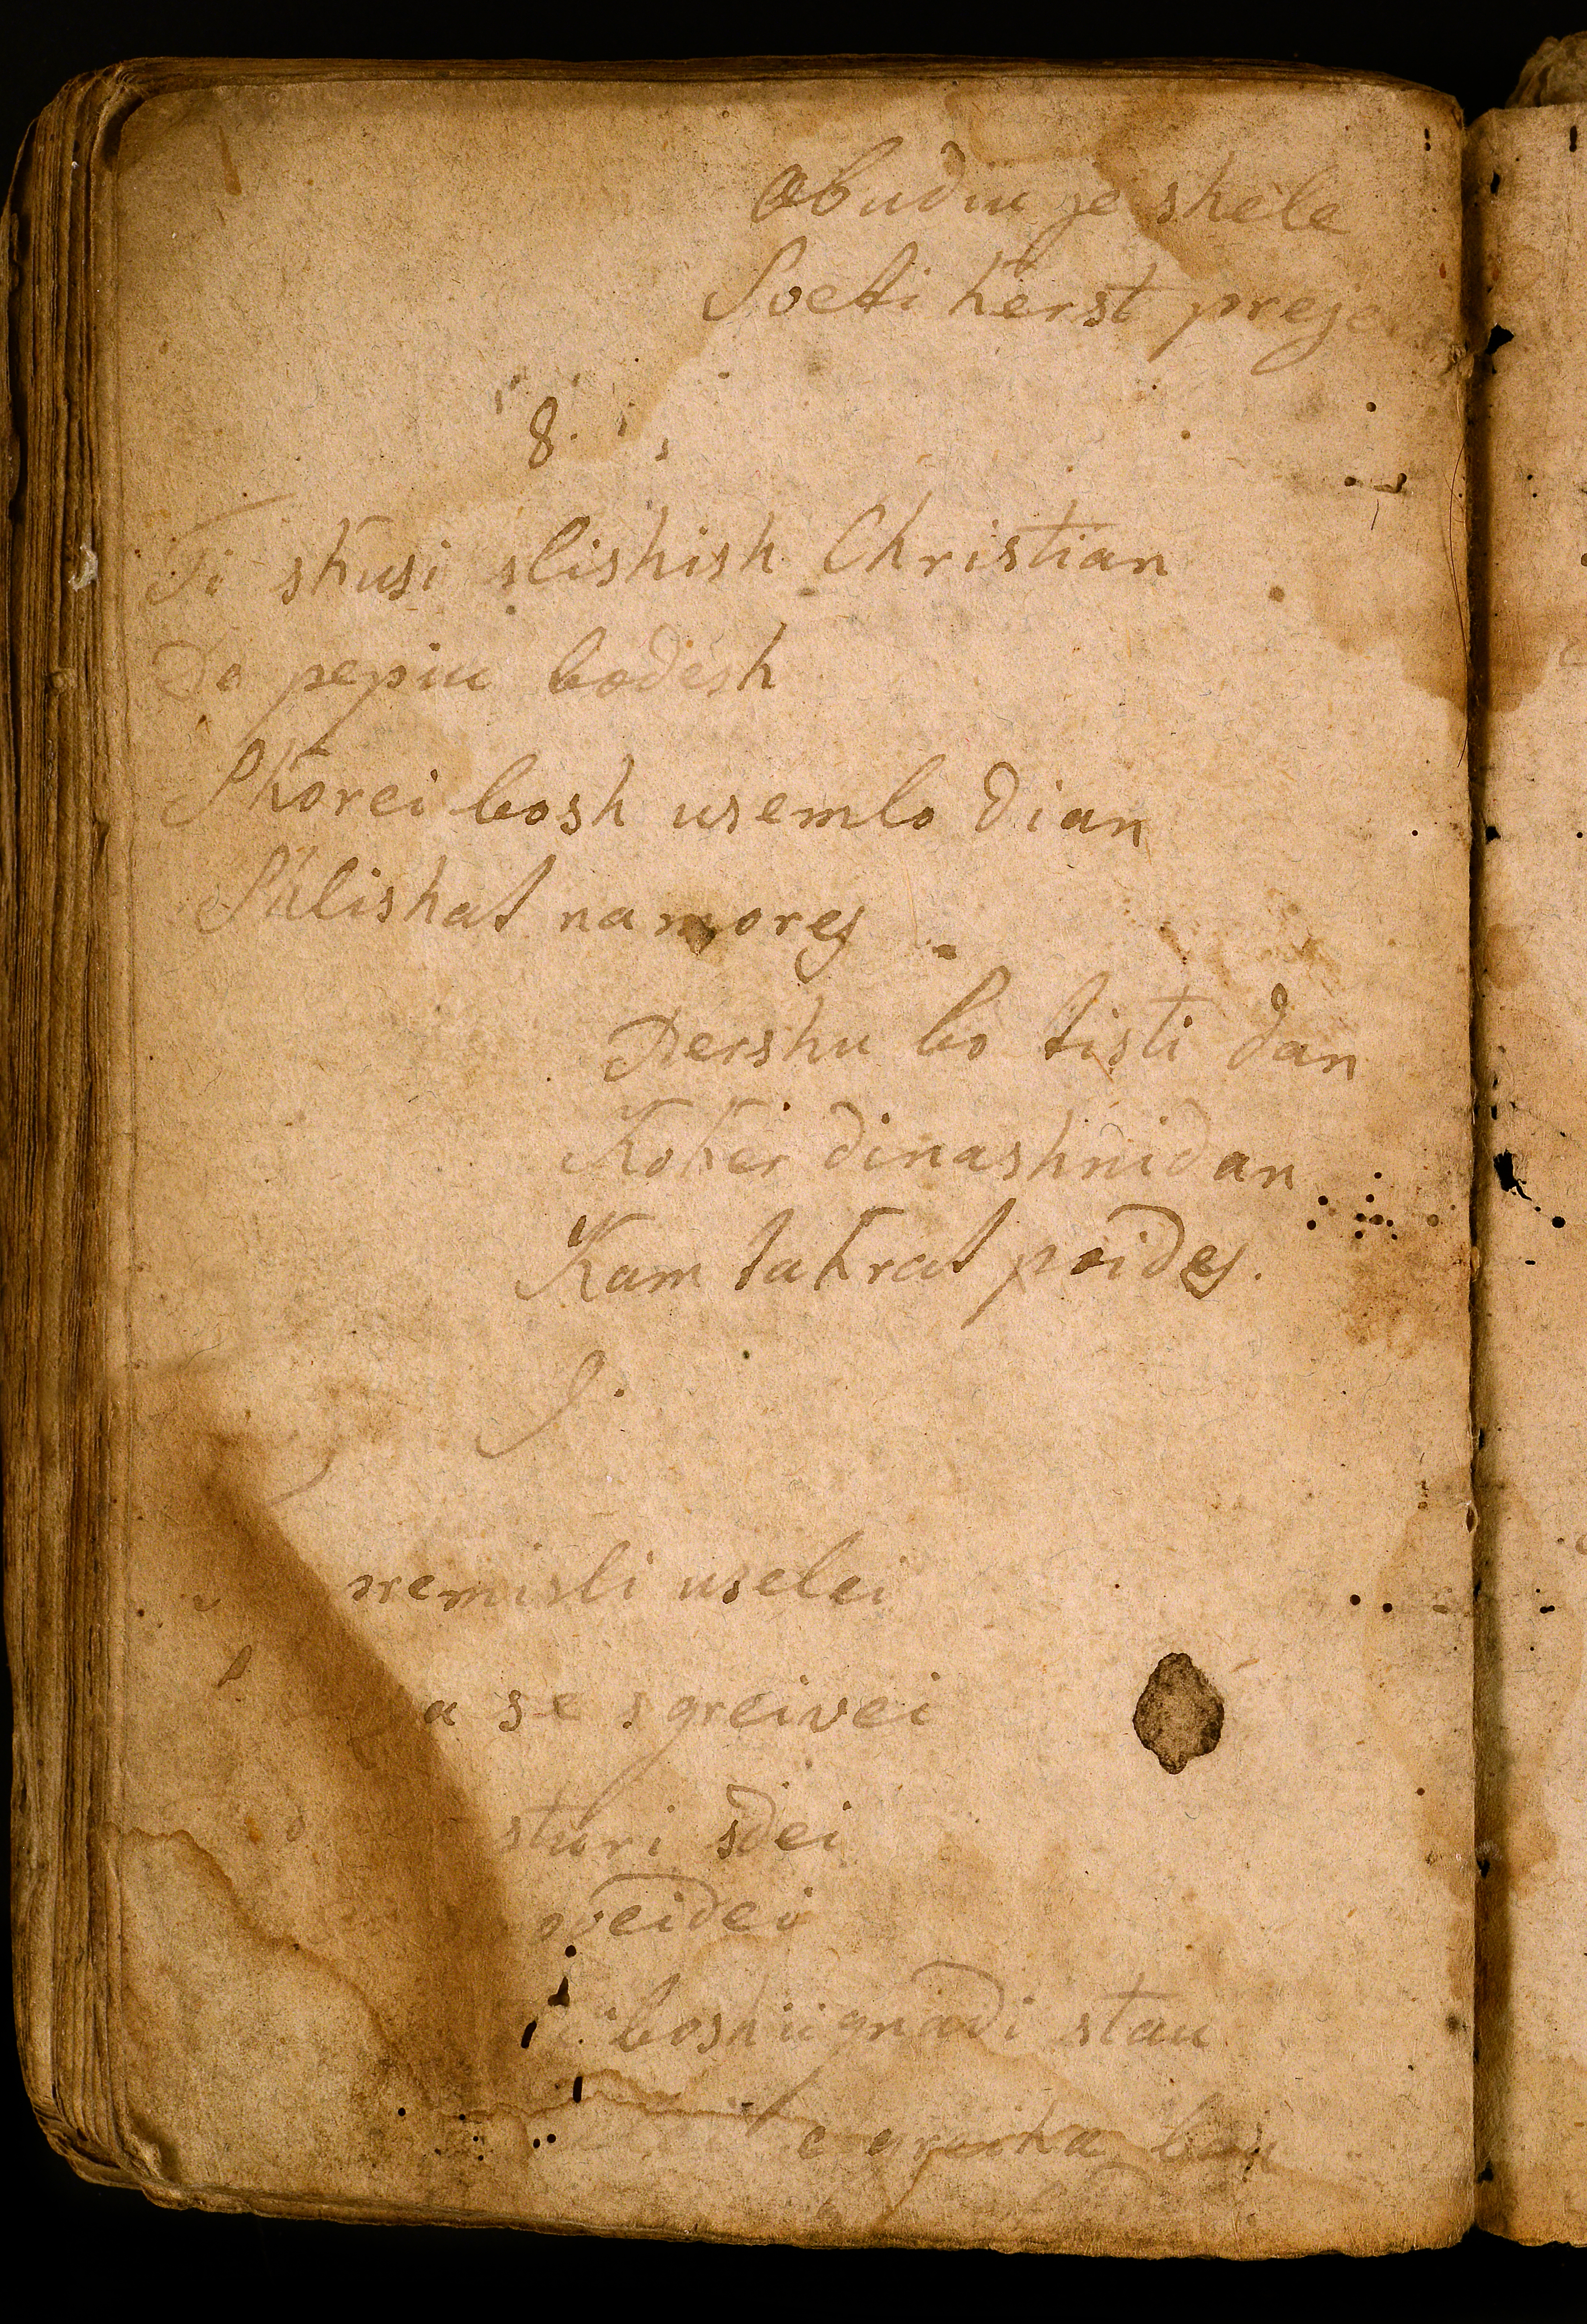 Obudiu je shele
Sveti kerst preje
8.
Ti skusi slishish Christian
De pepiu bodesh
Skorei bosh usemlo dian
Salishat na morej
Dershu bo tisti dan
Koker dinashnidan
Kam takrat poidej.
9.
premisli uselei
a se sgreivei
sturi sdei
boshii gnadi stau